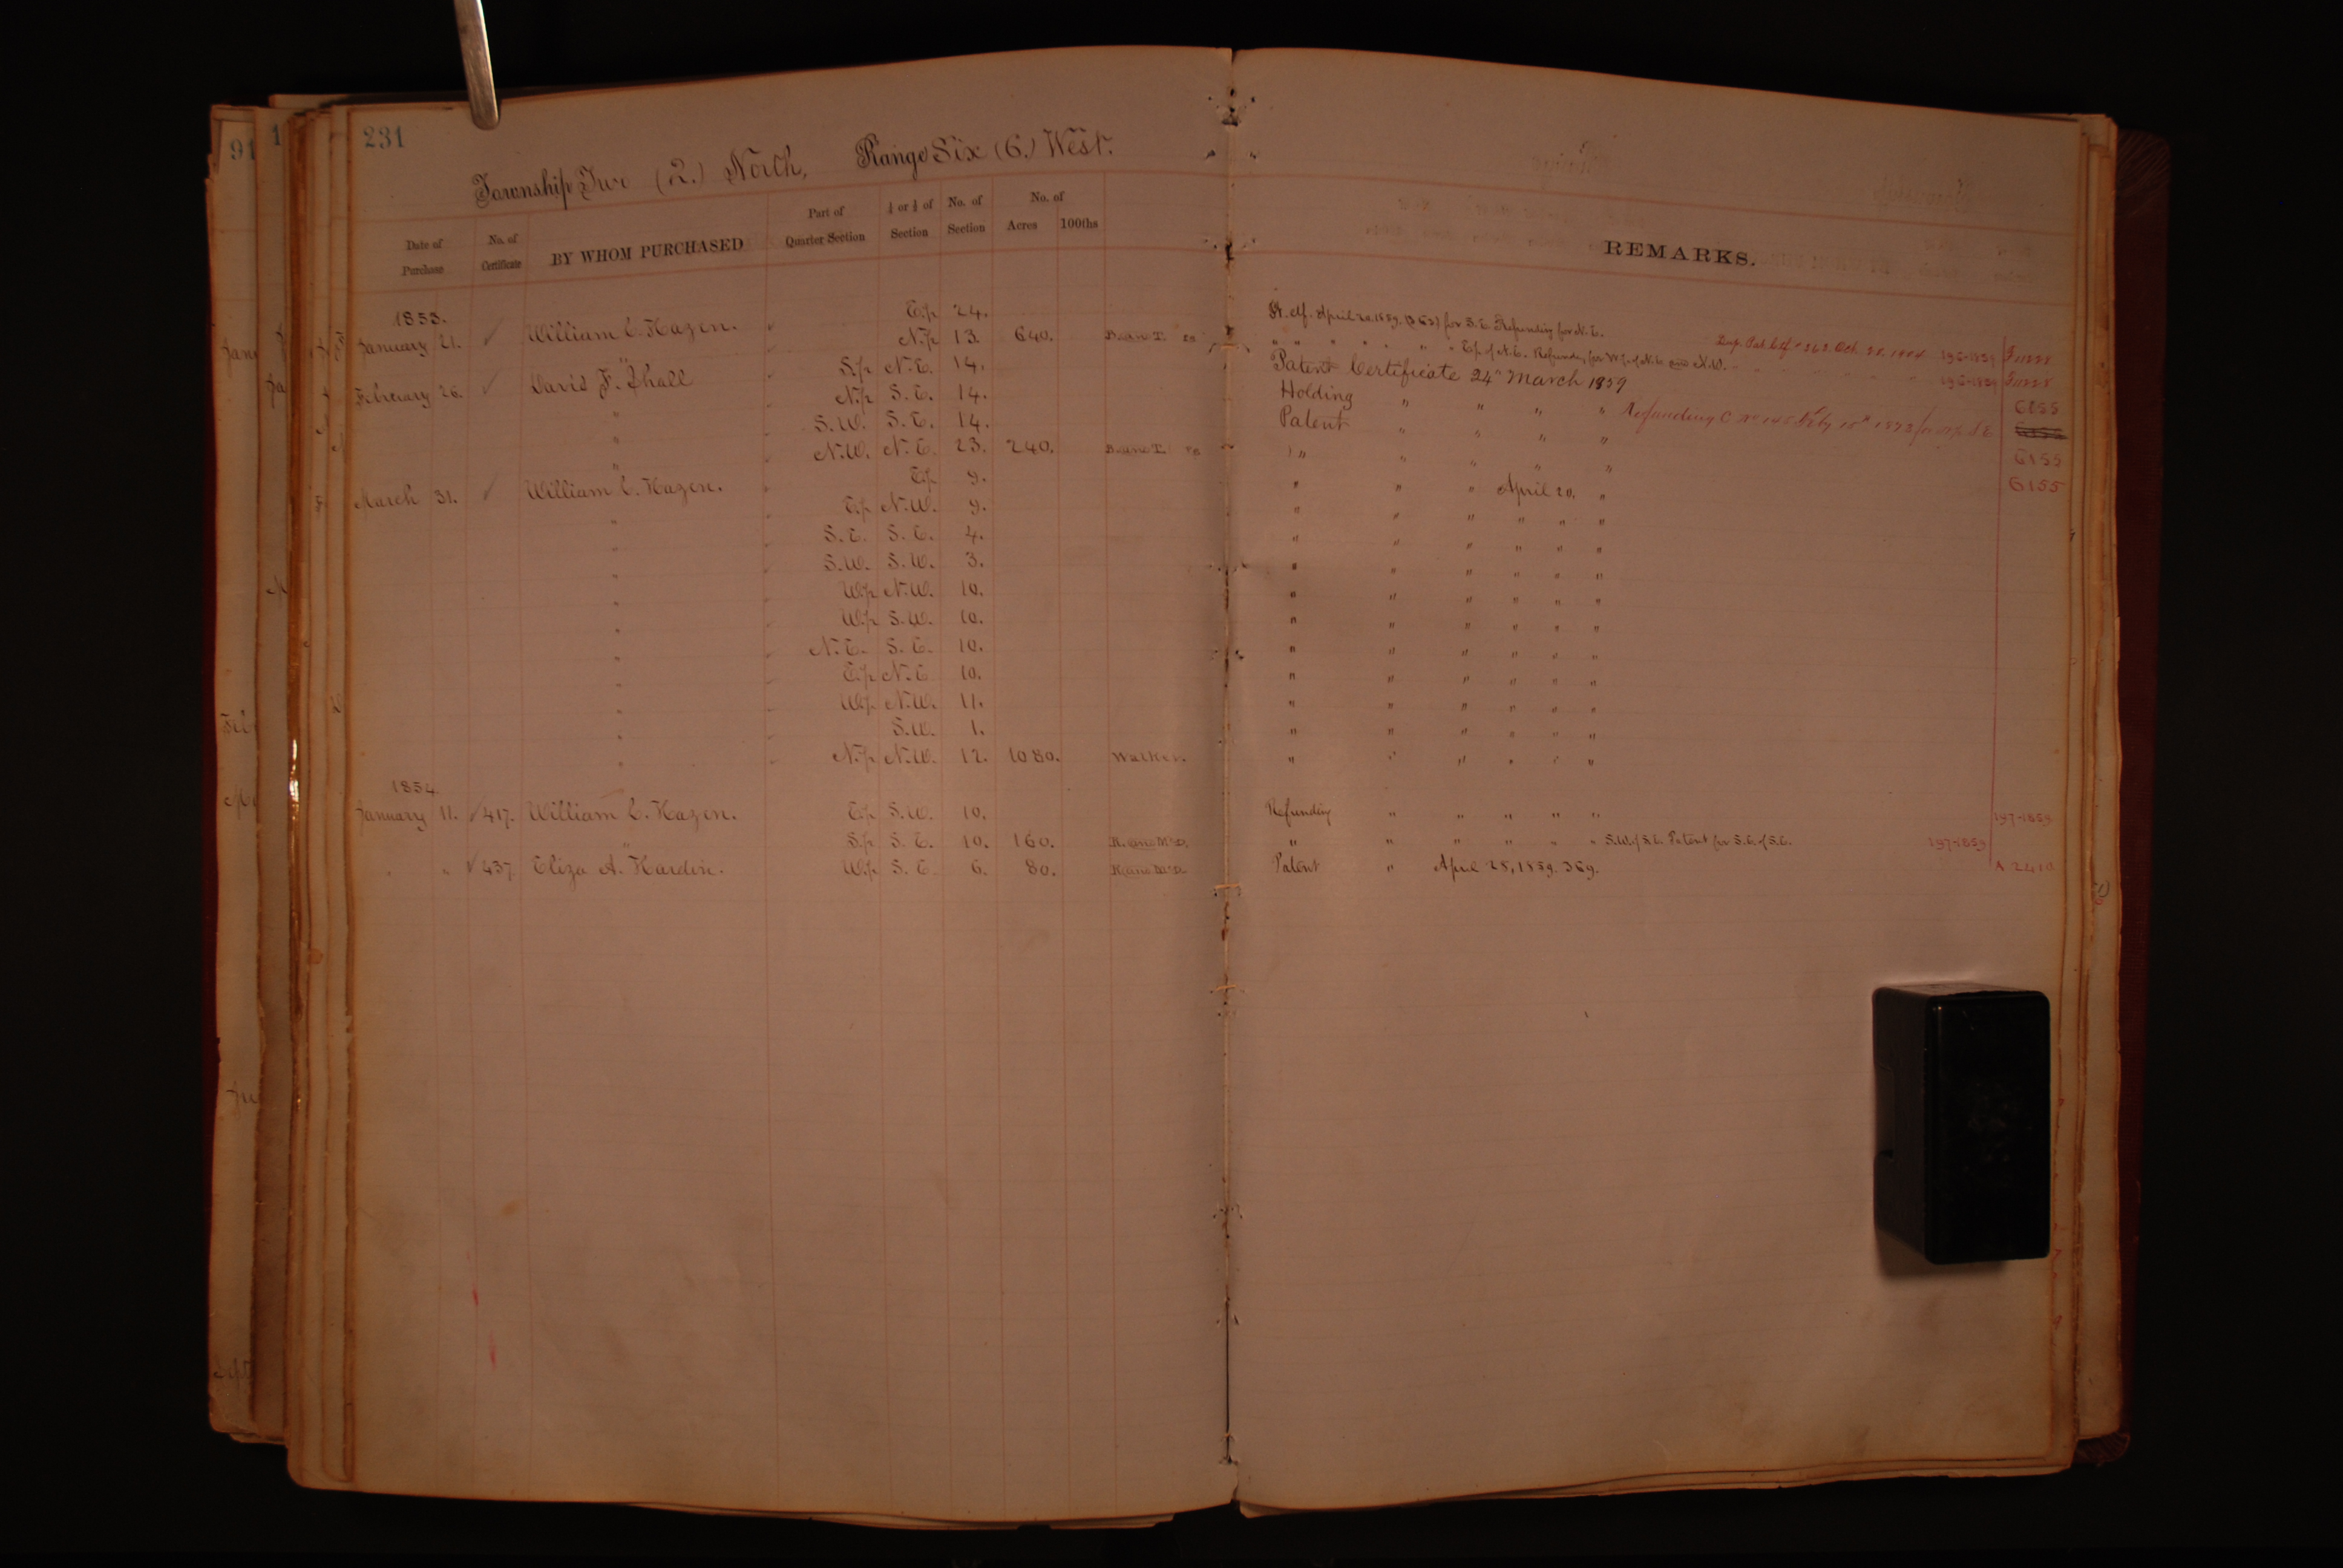 231
Township Two (2.) North, Range Six (6.) West.
Date of Purchase No. of Certificate BY WHOM PURCHASED Part of Quarter Section ¼ or ½ of Section No. of Section No. of Acres 100ths REMARKS.
1853. E½ 24. April 20 1859. (362) for S.E. Refunding for N.E.
January 21. ✓ William C. Hazen. " N½ 13. 640. " " " " " " E½ of N.E. Refunding for W½ of N.E. and N.W. 196-1859
February 26. ✓ David F. " S½ N.E. 14. Patent Certificate 24" March 1859 196-1859
" N½ S.E. 14. Holding " " " " Refunding C No 145 Feby 15th 1873 for N½ S.E. 6155
" S.W. S.E. 14. Patent " " " "
" N.W. N.E. 23. 240. " " " " " 6155
March 31. ✓ William C. Hazen. E½ 9. " " " April 20. " 6155
" E½ N.W. 9. " " " " " "
" S.E. S.E. 4. " " " " " "
" S.W. S.W. 3. " " " " " "
" W½ N.W. 10. " " " " " "
" W½ S.W. 10. " " " " " "
" N.E. S.E. 10. " " " " " "
" E½ N.E. 10. " " " " " "
" W½ N.W. 11. " " " " " "
" S.W. 1. " " " " " "
" N½ N.W. 12. 1080. Walker. " " " " " "
1854.
January 11. ✓ 417. William C. Hazen. E½ S.W. 10. Refunding " " " " " 197-1859
" S½ S.E. 10. 160. K. and McD. " " " " " " S.W. of S.E. Patent for S.E. of S.E. 197-1859
" " ✓ 437 Eliza A. Hardin. W½ S.E. 6. 80. K and McD. Patent " April 25, 1859. 369. A 2410